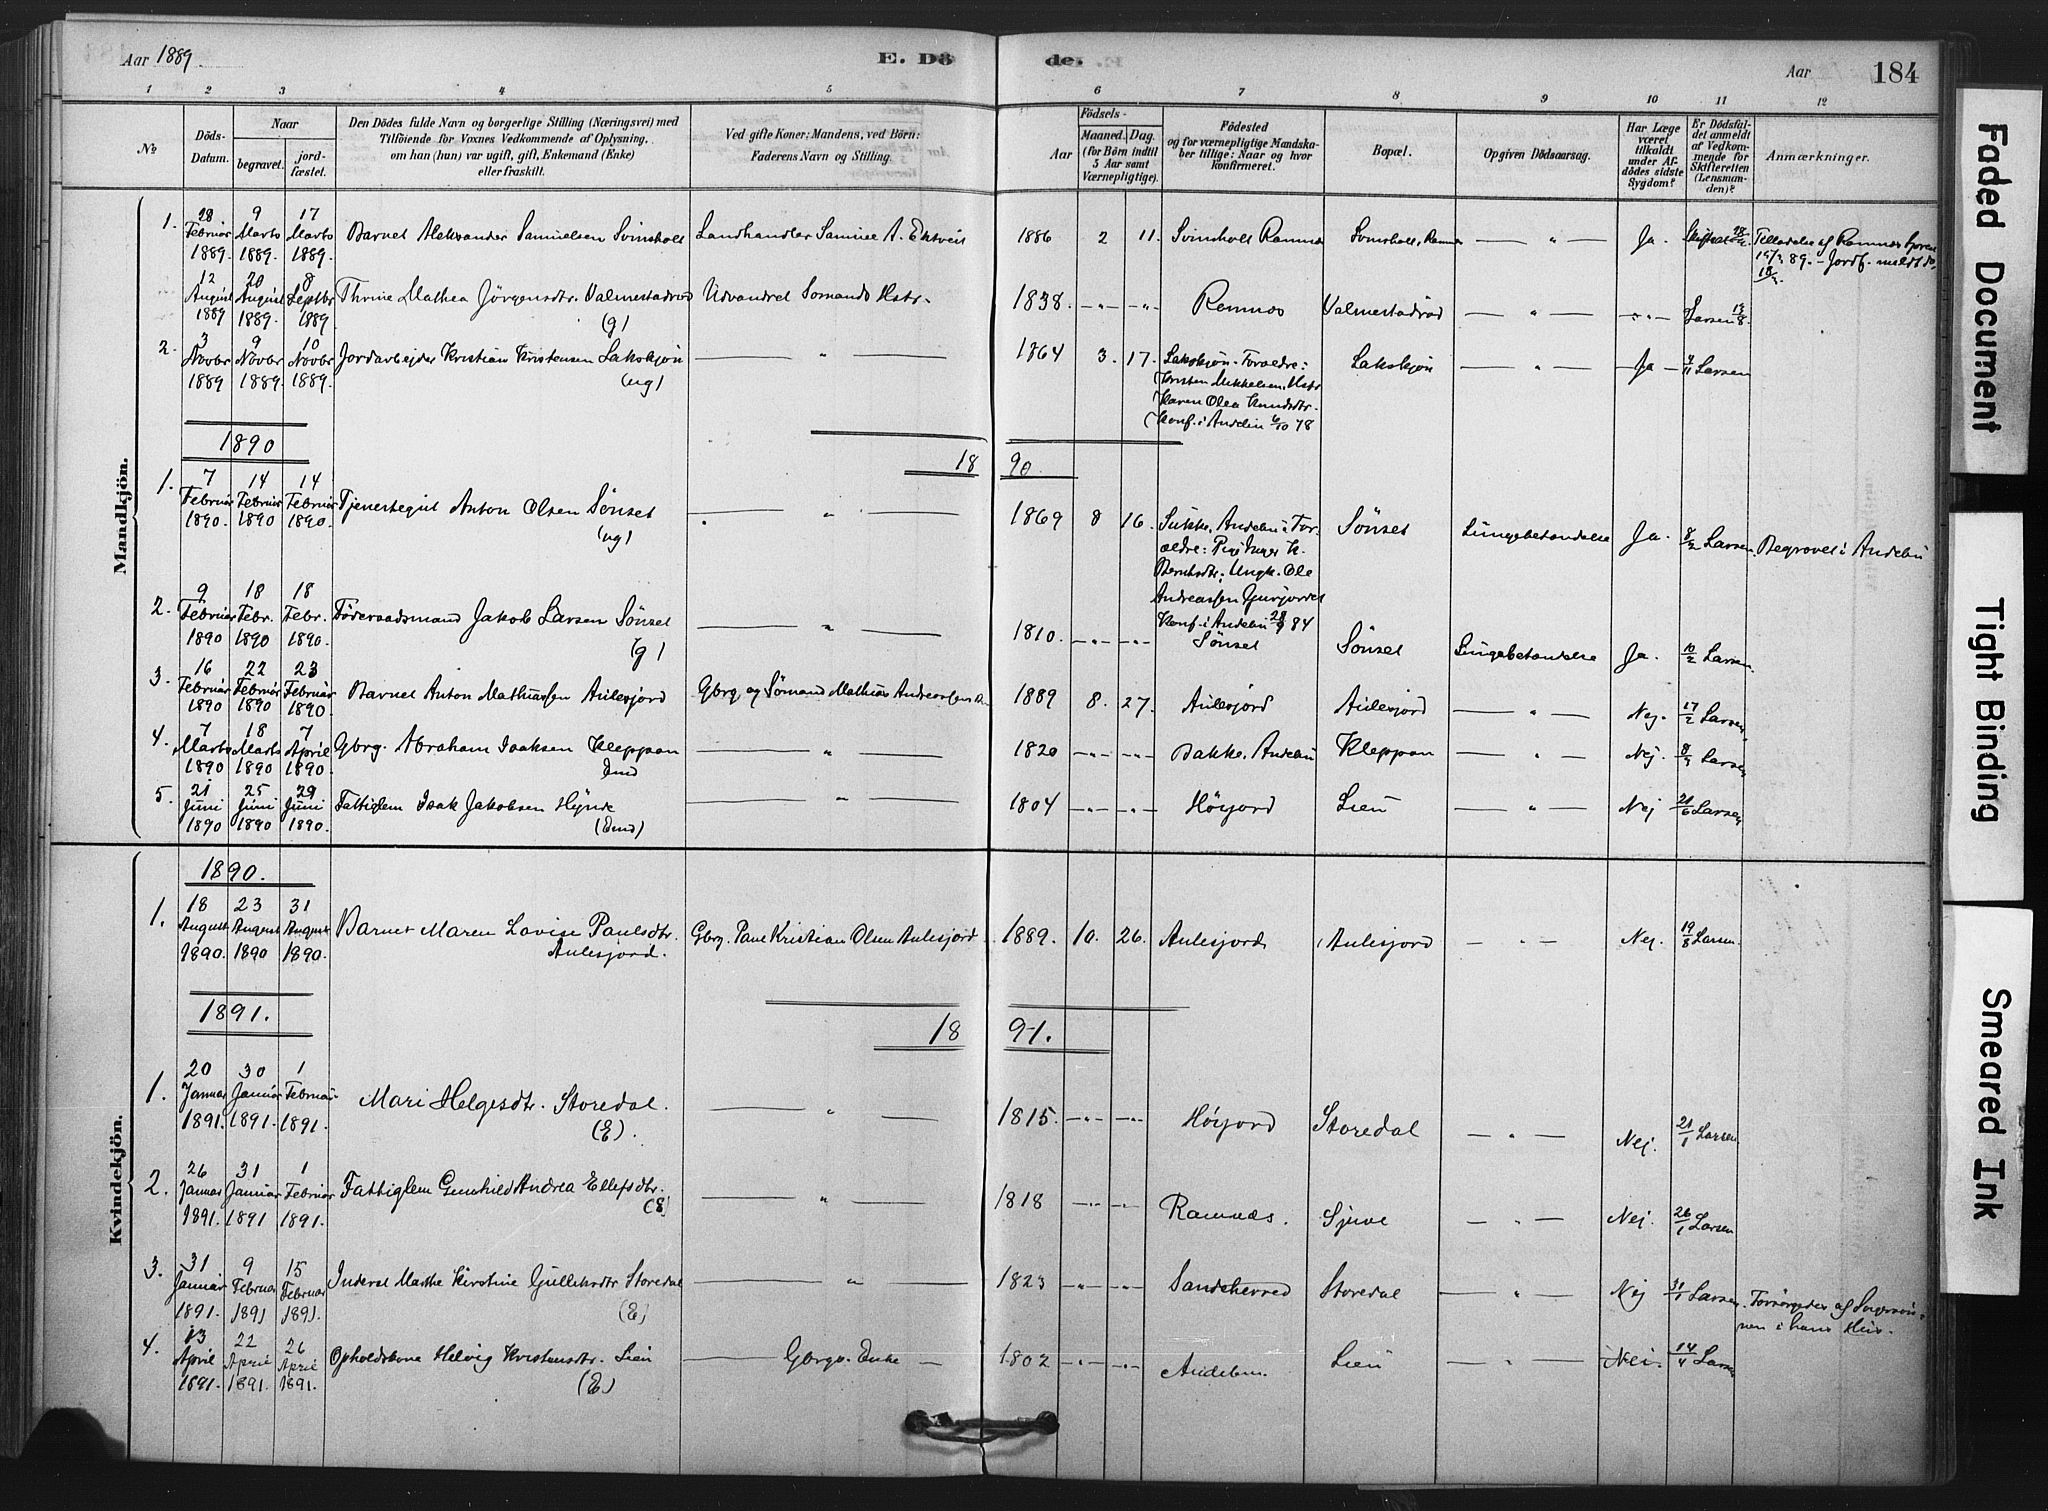 Aar 1889
E. Dö
de.
Aar
184
1 2 3 4 5 6 7 8 9 10 11 12
No
Döds-
Datum.
Naar
begravet.
jord-
fæstet.
Den Dödes fulde Navn og borgerlige Stilling (Næringsvei) med
Tilföiende for Voxnes Vedkommende af Oplysning,
om han (hun) var ugift, gift, Enkemand (Enke)
eller fraskilt.
Ved gifte Koner: Mandens, ved Börn:
Faderens Navn og Stilling.
Födsels-
Aar
Maaned. Dag.
(for Börn indtil
5 Aar samt
Værnepligtige).
Födested
og for værnepligtige Mandska-
ber tillige: Naar og hvor
konfirmeret.
Bopæl.
Opgiven Dödsaarsag.
Har Læge
været
tilkaldt
under Af-
dödes sidste
Sygdom?
Er Dödsfal-
det anmeldt
af Vedkom-
mende for
Skifteretten
(Lensman-
den)?
Anmærkninger.
Mandkjön.
1. 28 Februar 1889. 9 Marts 1889. 17 Marts 1889. Barnet Aleksander Samuelsen Svinsholt Landhandler Samuel A. 1886 2 11. Svinsholt Ramnæs Svinsholt, Ramnæs — " — Ja.
12 August 1889 20 August 1889. 8 Septbr 1889. Thrine Mathea Jörgensdtr. Valmestadrød Udvandret Sömands Hstr. 1838. — " — Ramnæs Valmestadrød — " — Larsen 13/8.
(g)
2. 3 Novbr 1889 9 Novbr 1889. 10 Novbr 1889. Jordarbejder Kristian Kristensen Lakskjøn — " — 1864 3. 17. Lakskjøn. Forældre: Lakskjøn — " — Ja — 4/11 Larsen
(ug)
Kristen Mikkelsen, Hstr
Karen Olea Knudsdtr.
Konf. i Andebu 6/10 78
1890
18 90.
1. 7 Februar 1890. 14 Februar 1890 14 Februar 1890. Tjenestegut Anton Olsen Sönset — " — 1869 8 16. Andebu. For- Sönset Lungebetændelse Ja. 8/2 Larsen. Begravet i Andebu
(ug)
ældre: Pige Inger K.
Berntsdtr. Ungk. Ole
Andreassen Gurijordet
Konf. i Andebu 28/9 84
2. 9 Februar 1890 18 Febr. 1890 18 Febr. 1890. Föderaadsmand Jakob Larsen Sönset — " — 1810. — " — Sönset Sönset Lungebetændelse Ja. 10/2 Larsen.
(g)
3. 16 Februar 1890 22 Februar 1890 23 Februar 1890. Barnet Anton Mathiassen Aulesjord Gbrg. og Sömand Mathias Andreassen 1889 8. 27. Aulesjord Aulesjord — " — Nej. 17/2 Larsen.
4. 7 Marts 1890 18 Marts 1890 7 April 1890. Gbrg. Abraham Isaksen Kleppan — " — 1820 — " — Bakke. Andebu Kleppan — " — Nej. 8/3 Larsen
Emd
5. 21 Juni 1890 25 Juni 1890 29 Juni 1890. Fattiglem Isak Jakobsen Hynne — " — 1804 — " — Höyjord Lien — " — Nej 21/6 Larsen
(Emd)
Kvindekjön.
1890.
1. 18 August 1890. 23 August 1890 31 August 1890. Barnet Maren Lovise Paulsdtr. Gbrg. Paul Kristian Olsen Aulesjord 1889. 10. 26. Aulesjord Aulesjord — " — Nej. 19/8 Larsen.
Aulesjord.
1891.
18 91.
1. 20 Januar 1891. 30 Januar 1891. 1 Februar 1891. Mari Helgesdtr. Storedal. — " — 1815. — " — Höyjord Storedal — " — Nej. 21/1 Larsen
(E).
2. 26 Januar 1891. 31 Januar 1891 1 Februar 1891. Fattiglem Gunhild Andrea Ellefsdtr. — " — 1818 — " — Ramnæs. Sjuve — " — Nej. 26/1 Larsen
(E)
3. 31 Januar 1891. 9 Februar 1891 15 Februar 1891. Inderst Marthe Kirstine Gulliksdtr Storedal — " — 1823 — " — Sandeherred Storedal — " — Nej 31/1 Larsen. Forsörgedes af
(E)
nen i hans Hus.
4. 13 April 1891. 22 April 1891. 26 April 1891. Opholdskone Helvig Kristensdtr. Lien — Gbrgr. Enke — 1802 — " — Andebu. Lien — " — Nei. 14/4 Larsen
(E)
Faded Document
Tight Binding
Smeared Ink